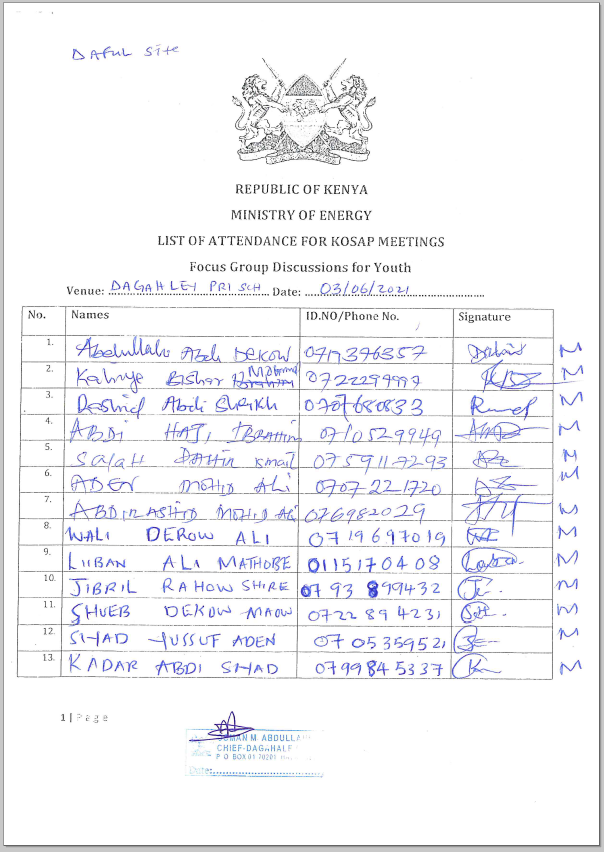 DAFUL SITE
REPUBLIC OF KENYA
MINISTRY OF ENERGY
LIST OF ATTENDANCE FOR KOSAP MEETINGS
Focus Group Discussions for Youth
Venue: DAGAHLEY PRI SCH Date: 03/06/2021
No. Names ID.NO/Phone No. Signature
1. Abdullahi Abdi DEKOW 0717396357 M
2. Bishar Mohamed 0722299997 M
3. Rashid Abdi Sheikh 0707680833 M
4. ABDI HAJI IBRAHIM 0710529949 M
5. Salah DAHIR ismail 0759117293 M
6. ADEN MOHD ALI 0707221720 M
7. ABDIRASHID MOHD ALI 076982029 M
8. WALI DEROW ALI 0719697019 M
9. LIIBAN ALI MATHOBE 0115170408 M
10. JIBRIL RAHOW SHIRE 0793899432 M
11. SHUEB DEKOW MAOW 0722894231 M
12. SIYAD YUSSUF ADEN 0705359521 M
13. KADAR ABDI SIYAD 0799845337 M
1 | Page
OSMAN M. ABDULLAHI
CHIEF-DAGAHALE
P O BOX 01 70201
Date: